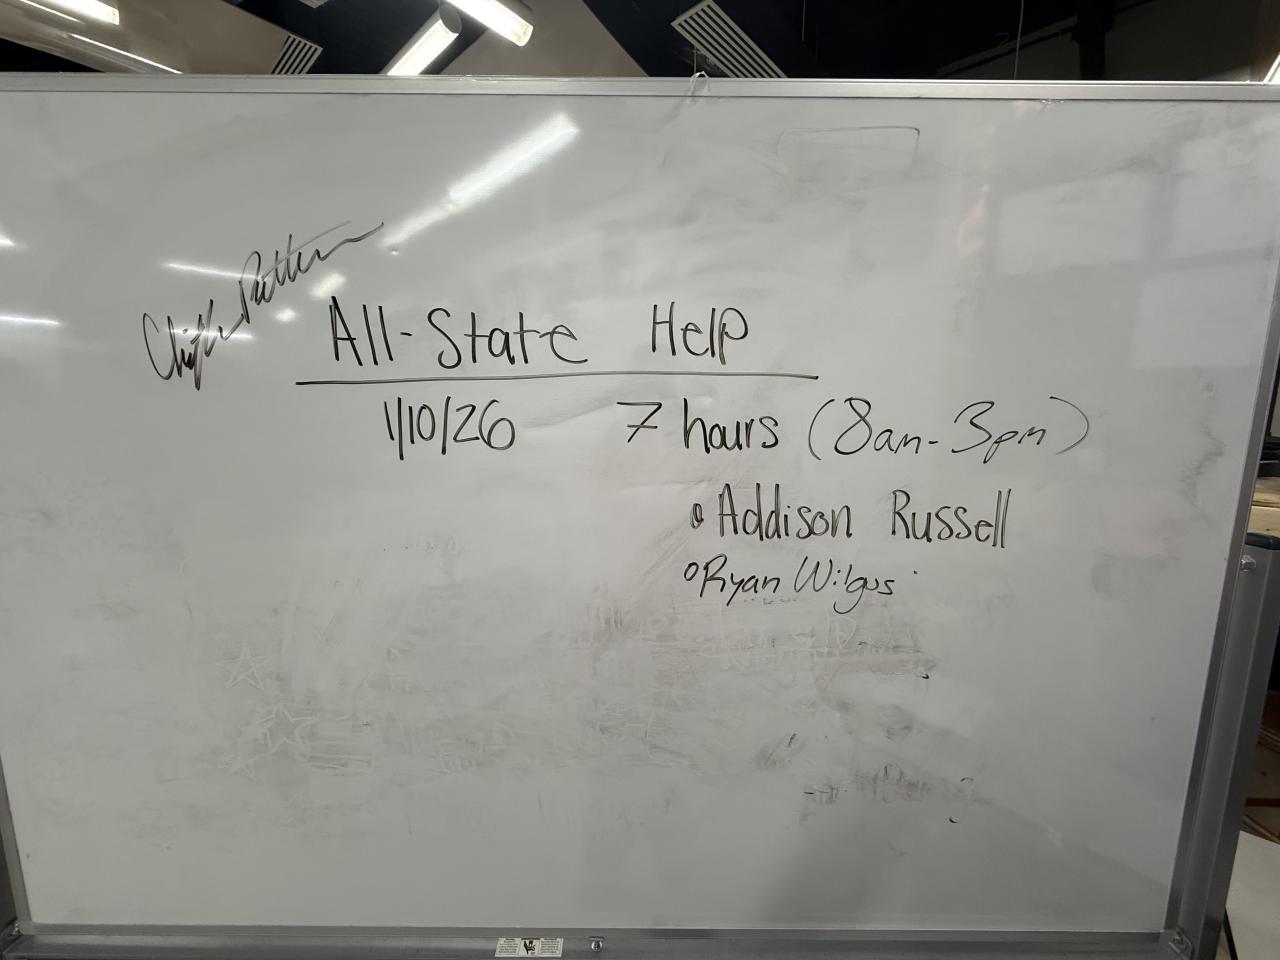 All-State Help
1/10/26 7 hours (8am-3pm)
Addison Russell
Ryan Wilgus